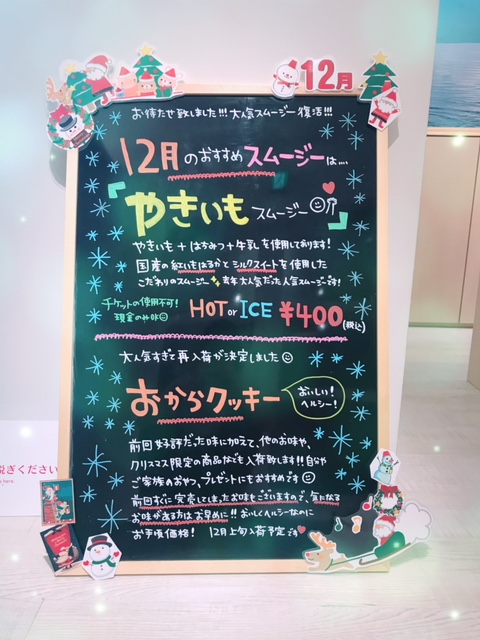 12月
お待たせ致しました!!! 大人気スムージー復活!!!
12月のおすすめスムージーは....
『やきいもスムージー』
やきいも+はちみつ+牛乳を使用しております!
国産の紅いもはるかとシルクスイートを使用した
こだわりのスムージー 去年大人気だった人気スムージーです!
チケットの使用不可!
現金のみ
HOT or ICE ¥400(税込)
大人気すぎて再入荷が決定しました
おからクッキー
おいしい!
ヘルシー!
前回好評だった味に加えて、他のお味や、
クリスマス限定の商品なども入荷致します!!自分や
ご家族のおやつ、プレゼントにもおすすめです
前回すぐに完売してしまったお味もございますので、気になる
お味がある方はお早めに!! おいしくヘルシーなのに
お手頃価格! 12月上旬入荷予定です
脱ぎください
here.